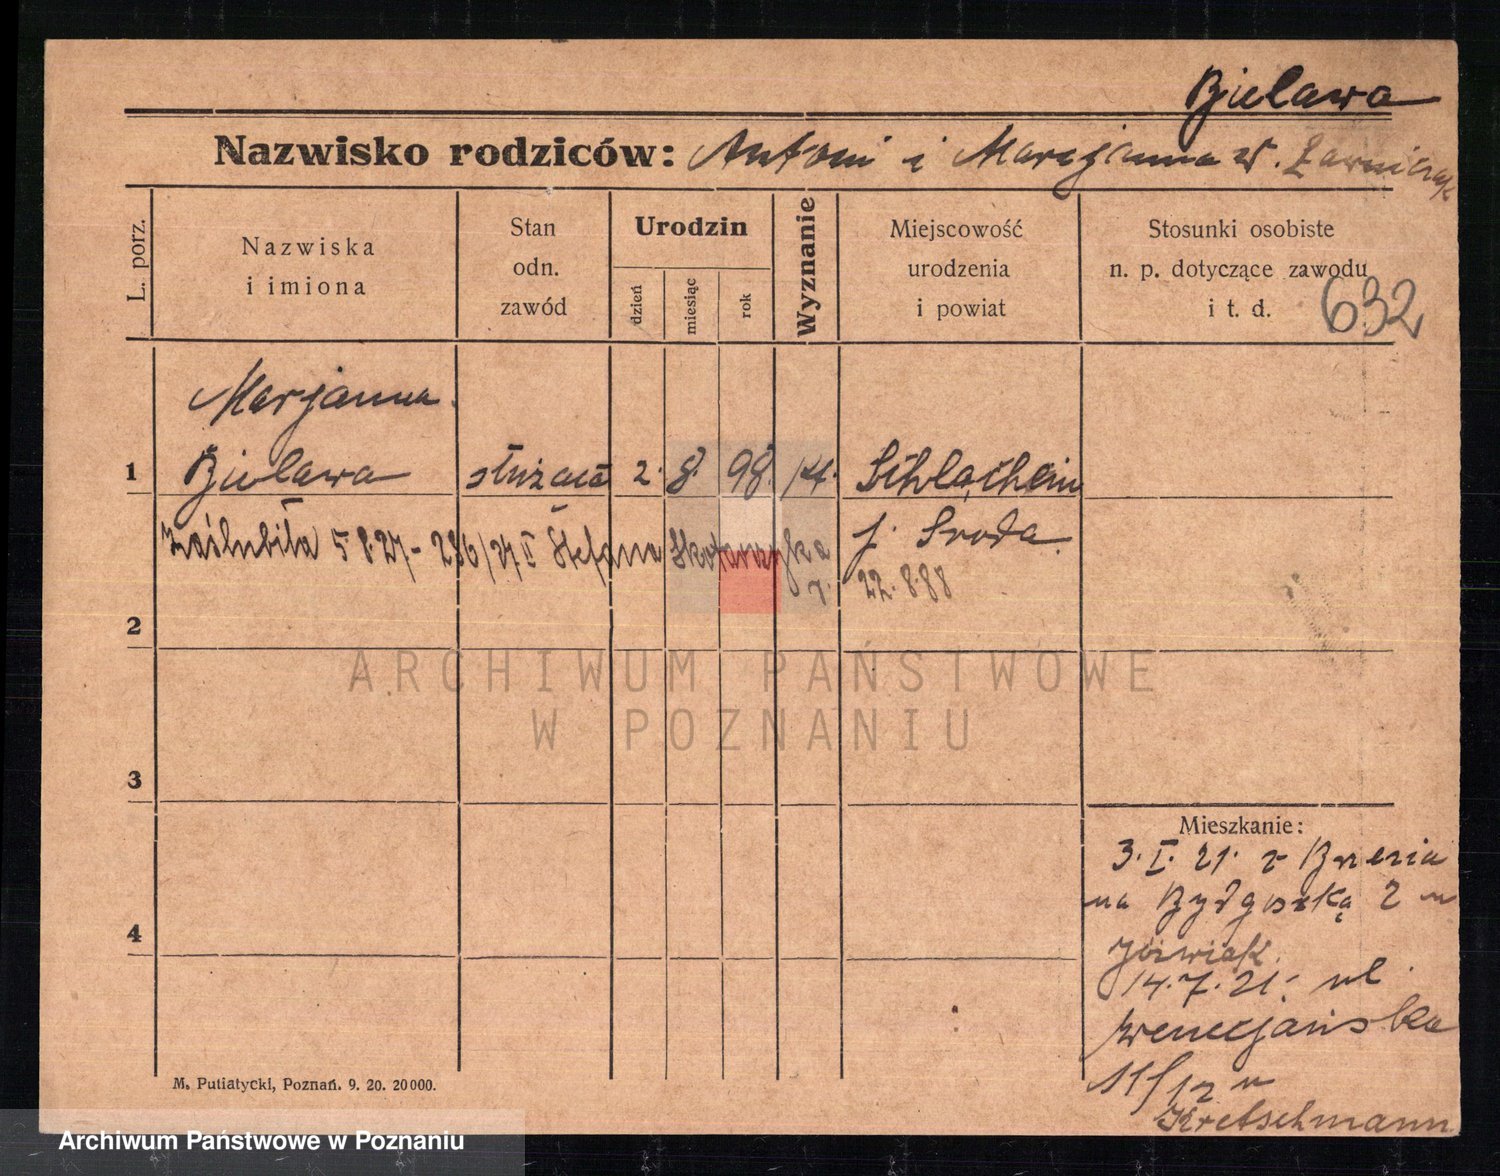 Bielawa
Nazwisko rodziców: Antoni i Marcjanna z.
L. porz.
Nazwiska
i imiona
Stan
odn.
zawód
Urodzin
dzień
miesiąc
rok
Wyznanie
Miejscowość
urodzenia
i powiat
Stosunki osobiste
n. p. dotyczące zawodu
i t. d.
632
Marjanna
1 Bielawa służąca 2. 8. 98.
zaślubiła 5 8.27 - 236/27 II Stefana
p. Sroda.
22. 8. 88
2
3
4
Mieszkanie:
3. I. 21. z
na Bydgoską 2 u
Jóźwiak.
14. 7. 21. ul.
Wenecjańska
11/12 u
Kretschmann
M. Putiatycki, Poznań. 9. 20. 20000.
ARCHIWUM PAŃSTWOWE
W POZNANIU
Archiwum Państwowe w Poznaniu